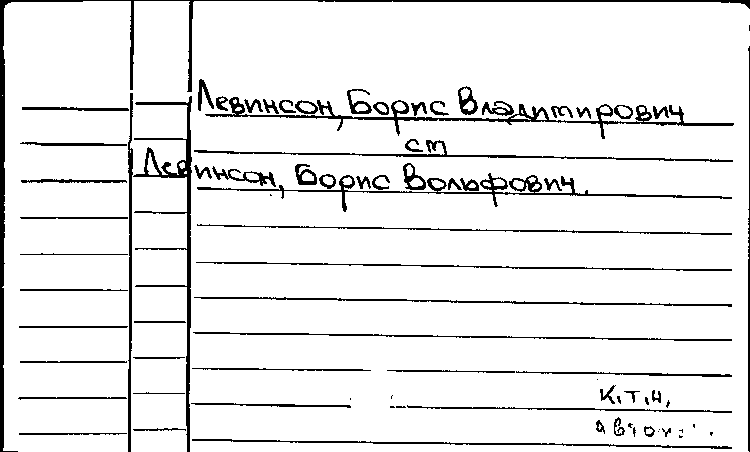 Левинсон, Борис Владимирович
см
Левинсон, Борис Вольфович.
К.Т.Н,